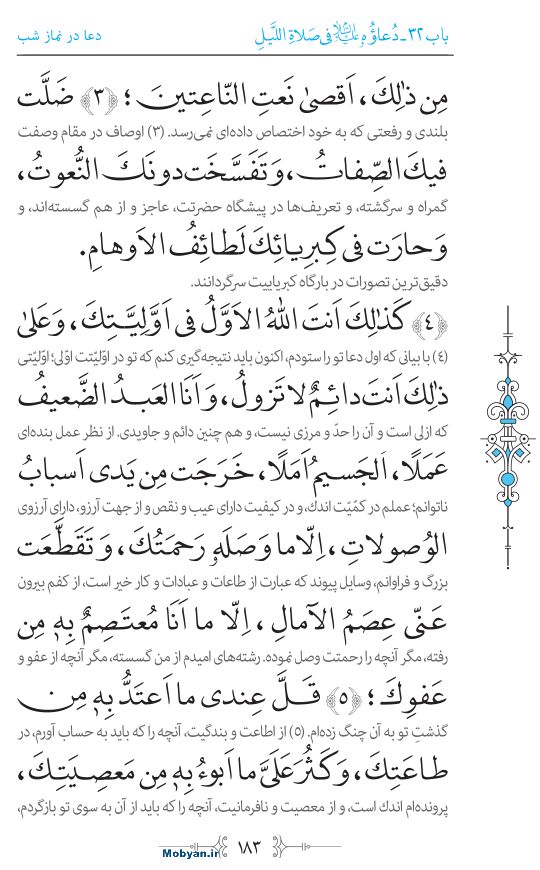 باب ۳۲ـ دُعاؤُهُ عليه‌السلام فی صَلاةِ اللَّيلِ
دعا در نماز شب
مِن ذٰلِكَ، اَقصیٰ نَعتِ النّاعِتينَ؛ ﴿۳﴾ ضَلَّت
بلندی و رفعتی که به خود اختصاص داده‌ای نمی‌رسد. (۳) اوصاف در مقام وصفت
فيكَ الصِّفاتُ، وَ تَفَسَّخَت دونَكَ النُّعوتُ،
گمراه و سرگشته، و تعریف‌ها در پیشگاه حضرتت، عاجز و از هم گسسته‌اند، و
وَ حارَت فی كِبرِيائِكَ لَطائِفُ الاَوهامِ.
دقیق‌ترین تصورات در بارگاه کبریاییت سرگردانند.
﴿٤﴾ كَذٰلِكَ اَنتَ اللّٰهُ الاَوَّلُ فی اَوَّلِيَّتِكَ، وَ عَلیٰ
(٤) با بیانی که اول دعا تو را ستودم، اکنون باید نتیجه‌گیری کنم که تو در اوّلیّتت اوّلی؛ اوّلیّتی
ذٰلِكَ اَنتَ دائِمٌ لا تَزولُ، وَ اَنَا العَبدُ الضَّعيفُ
که ازلی است و آن را حدّ و مرزی نیست، و هم چنین دائم و جاویدی. از نظر عمل بنده‌ای
عَمَلًا، اَلجَسيمُ اَمَلًا، خَرَجَت مِن يَدی اَسبابُ
ناتوانم؛ عملم در کمّیّت اندک، و در کیفیت دارای عیب و نقص و از جهت آرزو، دارای آرزوی
الوُصولاتِ، اِلّا ما وَصَلَهٗ رَحمَتُكَ، وَ تَقَطَّعَت
بزرگ و فراوانم، وسایل پیوند که عبارت از طاعات و عبادات و کار خیر است، از کفم بیرون
عَنّی عِصَمُ الآمالِ، اِلّا ما اَنَا مُعتَصِمٌ بِهٖ مِن
رفته، مگر آنچه را رحمتت وصل نموده. رشته‌های امیدم از من گسسته، مگر آنچه از عفو و
عَفوِكَ؛ ﴿۵﴾ قَلَّ عِندی ما اَعتَدُّ بِهٖ مِن
گذشتِ تو به آن چنگ زده‌ام. (۵) از اطاعت و بندگیت، آنچه را که باید به حساب آورم، در
طاعَتِكَ، وَ كَثُرَ عَلَیَّ ما اَبوءُ بِهٖ مِن مَعصِيَتِكَ،
پرونده‌ام اندک است، و از معصیت و نافرمانیت، آنچه را که باید از آن به سوی تو بازگردم،
۱۸۳
Mobyan.ir